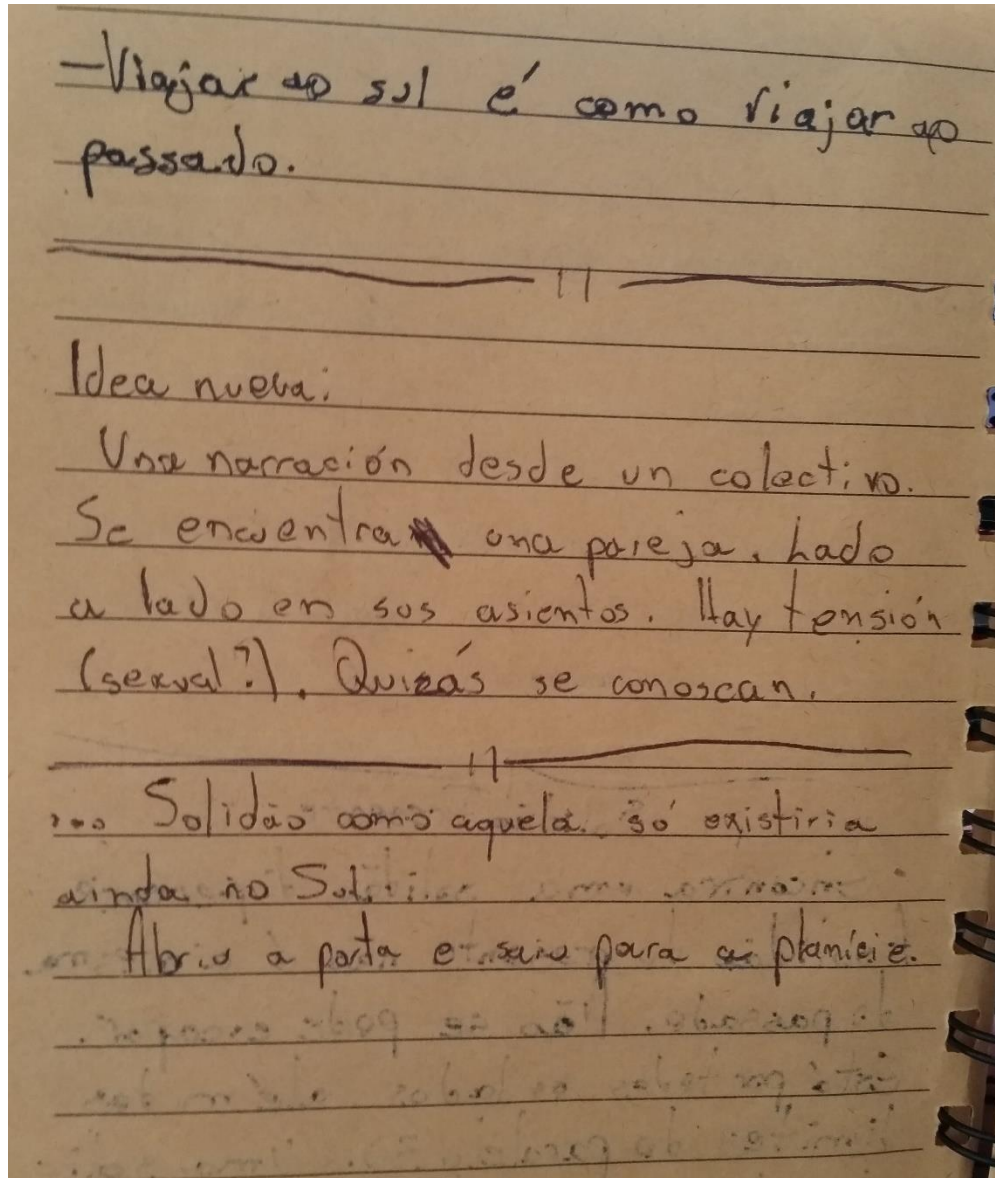 —Viajar ao sul é como viajar ao
passado.
Idea nueva:
Una narración desde un colectivo.
Se encuentra una pareja. Lado
a lado en sus asientos. Hay tensión
(sexual?). Quizás se conoscan.
... Solidão como aquela só existiria
ainda no Sul.
Abriu a porta e saiu para a planície.